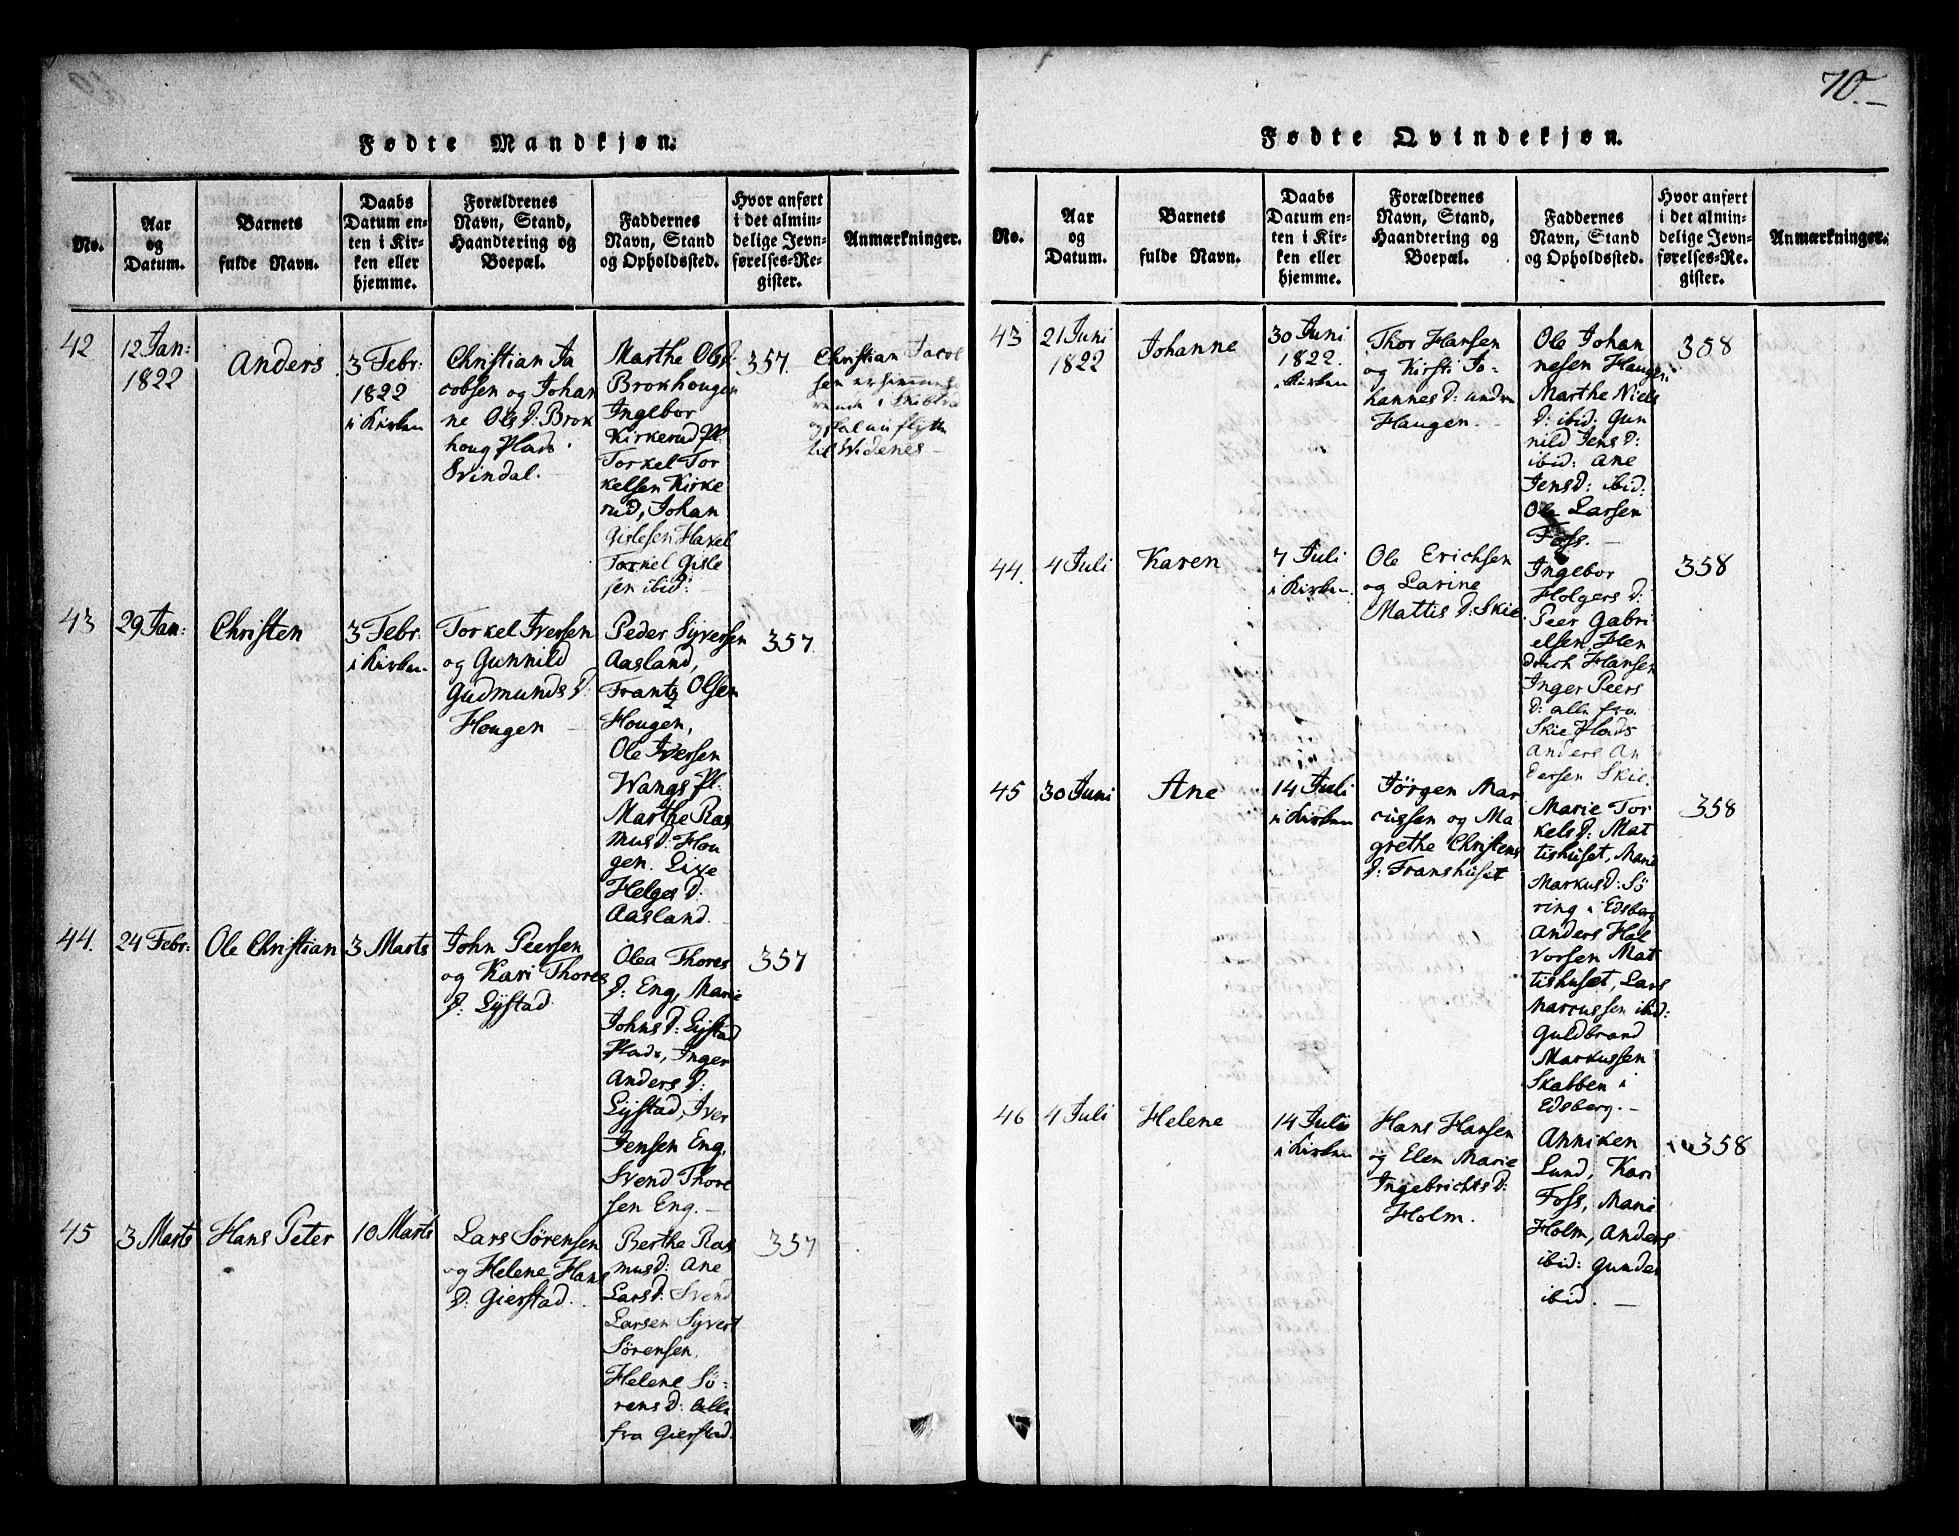 70.
Fødte Mandkjøn.
No.
Aar
og
Datum.
Barnets
fulde Navn.
Daabs
Datum en-
ten i Kir-
ken eller
hjemme.
Forældrenes
Navn, Stand,
Haandtering og
Boepæl.
Faddernes
Navn, Stand
og Opholdssted.
Hvor anført
i det almin-
delige Jevn-
førelses-Re-
gister.
Anmærkninger.
42
12 Jan:
1822
Anders
3 Febr:
1822
i Kirken
Christian Ja
cobsen og Johan
ne Ols D: Brok
houg Plads
Svindal.
Marthe Ols D:
Brokhougen
Ingebor
Kirkerud Pl.
Torkel Tor
kelsen Kirke
rud, Johan
Gislesen Haxel
Torkel Gisle
sen ibid:
357.
Christian Jacob
sen er
i
og skal nu flytte
til Widenes
43
29 Jan:
Christen
3 Febr:
i Kirken
Torkel Iversen
og Gunnild
Gudmunds D:
Hougen
Peder Syversen
Aasland,
Frantz Olsen
Hougen,
Ole Iversen
Wangs Pl.
Marthe Ras
mus D: Hou
gen. Live
Helges D.
Aasland.
357.
44.
24 Febr:
Ole Christian
3 Marts
John Peersen
og Kari Thores
D: Lystad
Olea Thores
D: Eng, Marie
Johns D: Lystad
Plads, Inger
Anders D:
Lystad, Iver
Jensen Eng,
Svend Thore
sen Eng.
357
45
3 Marts
Hans Peter
10 Marts
Lars Sørensen
og Helene Hans
D: Gierstad.
Berthe Ras
mus D: Ane
Lars D: Svend
Larsen Syvert
Sørensen,
Helene Sø-
rens D: alle
fra Gierstad.
357
Fødte Qvindekjøn.
No.
Aar
og
Datum.
Barnets
fulde Navn.
Daabs
Datum en-
ten i Kir-
ken eller
hjemme.
Forældrenes
Navn, Stand,
Haandtering og
Boepæl.
Faddernes
Navn, Stand
og Opholdssted.
Hvor anført
i det almin-
delige Jevn-
førelses-Re-
gister.
Anmærkninger.
43
21 Juni
1822
Johanne
30 Juni
1822.
i Kirken
Thor Hansen
og Kirsti Jo-
hannes D:
Haugen.
Ole Johan
nesen Haugen
Marthe Niels
D: ibid: Gun
nild Jens D:
ibid: Ane
Jens D: ibid:
Ole Larsen
Foss.
358
44.
4 Juli
Karen
7 Juli
i Kirken.
Ole Erichsen
og Larine
Mattis D: Skie.
Ingebor
Holgers D:
Peer Gabri
elsen, Hen
drich Hansen
Inger Peers
D: alle fra
Skie Plads
Anders An
dersen Skie.
358
45
30 Juni
Ane
14 Juli
i Kirken
Jörgen Mar
cussen og Ma
grethe Christens
D: Franshuset
Marie Tor
kels D: Mat
tishuset, Mari
Markus D: Sö
ring i Edsberg
Anders Hal
vorsen Mat
tishuset, Lars
Marcussen ibid:
Guldbrand
Markussen
Skabben i
Edsberg.
358
46
4 Juli
Helene
14 Juli
i Kirken
Hans Hansen
og Elen Marie
Ingebrichts D:
Holm.
Anniken
Lund, Kari
Foss, Marie
Holm, Anders
ibid: Gunder
ibid.
358